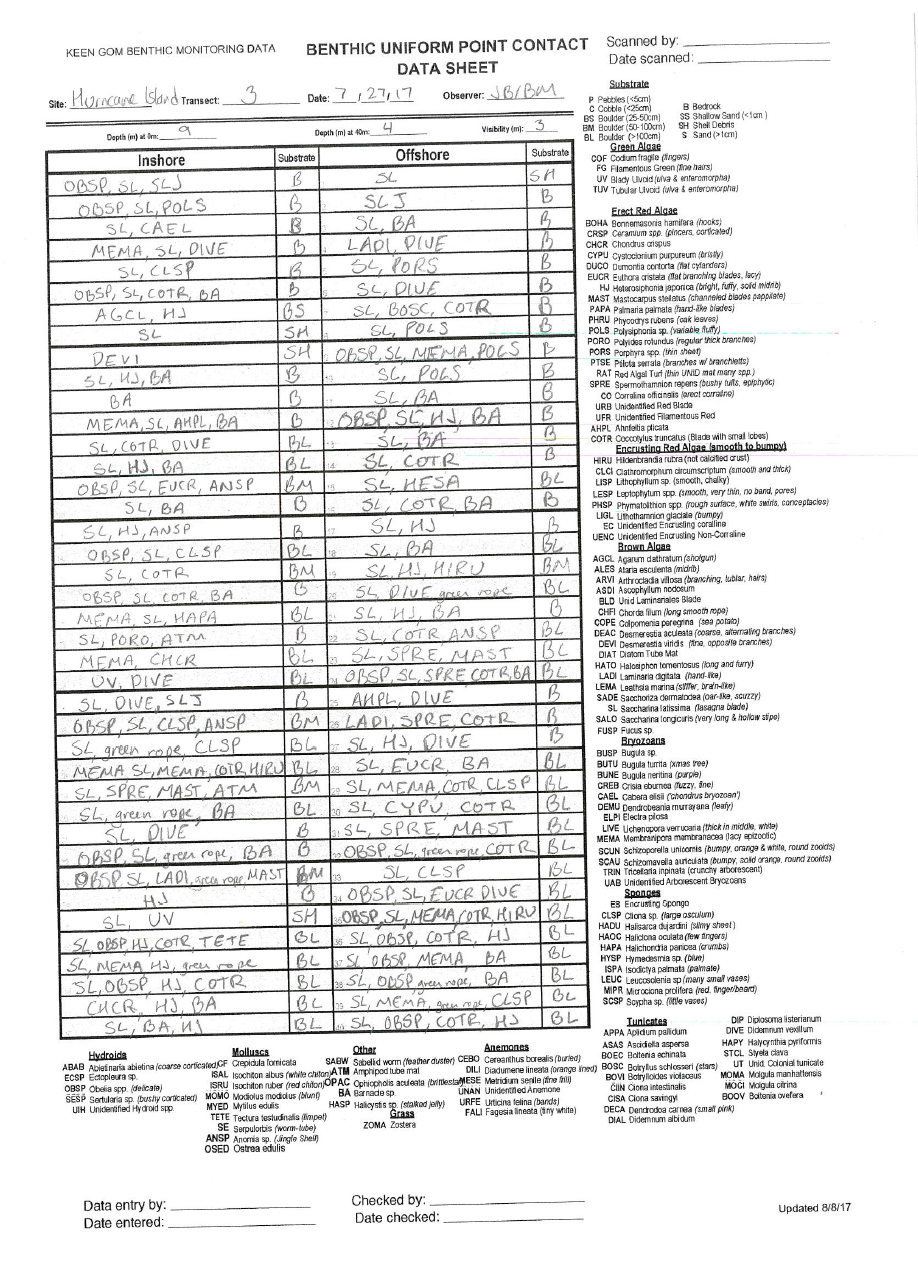 KEEN GOM BENTHIC MONITORING DATA
BENTHIC UNIFORM POINT CONTACT
DATA SHEET
Scanned by:
Date scanned:
Site: Hurricane Island Transect: 3 Date: 7/27/17 Observer: JB/BM
Depth (m) at 0m: 9 Depth (m) at 40m: 4 Visibility (m): 3
Inshore Substrate Offshore Substrate
OBSP, SL, SLJ B SL SH
OBSP, SL, POLS B SLJ B
SL, CAEL B SL, BA B
MEMA, SL, DIVE B LADI, DIVE B
SL, CLSP B SL, PORS B
OBSP, SL, COTR, BA B SL, DIVE B
AGCL, HJ BS SL, BOSC, COTR B
SL SH SL, POLS B
DEVI SH OBSP, SL, MEMA, POLS B
SL, HJ, BA B SL, POLS B
BA B SL, BA B
MEMA, SL, AHPL, BA B 12 OBSP, SL, HJ, BA B
SL, COTR, DIVE BL 13 SL, BA B
SL, HJ, BA BL 14 SL, COTR B
OBSP, SL, EUCR, ANSP BM SL, HESA BL
SL, BA B SL, COTR, BA B
SL, HJ, ANSP B SL, HJ B
OBSP, SL, CLSP BL SL, BA BL
SL, COTR BM SL, HJ, HIRU BM
OBSP, SL COTR, BA B SL, DIVE green rope BL
MEMA, SL, HAPA BL SL, HJ, BA B
SL, PORO, ATM B 22 SL, COTR ANSP BL
MEMA, CHCR BL SL, SPRE, MAST BL
UV, DIVE BL 24 OBSP, SL, SPRE COTR, BA BL
SL, DIVE, SLJ B AHPL, DIVE B
OBSP, SL, CLSP, ANSP BM LADI, SPRE, COTR B
SL green rope, CLSP BL SL, HJ, DIVE B
MEMA SL, MEMA, COTR, HIRU BL 28 SL, EUCR, BA BL
SL, SPRE, MAST, ATM BM 29 SL, MEMA, COTR CLSP BL
SL, green rope, BA BL 30 SL CYPU, COTR BL
SL, DIVE B 31 SL, SPRE, MAST BL
OBSP, SL, green rope, BA B OBSP, SL, green rope COTR, BL
OBSP, SL, LADI, green rope, MAST BM 33 SL, CLSP BL
HJ B 34 OBSP, SL, EUCR DIVE BL
SL, UV SH 35 OBSP, SL, MEMA, COTR, HIRU BL
SL, OBSP, HJ, COTR, TETE BL 36 SL, OBSP, COTR, HJ BL
SL, MEMA, HJ, green rope BL 37 SL OBSP, MEMA BA BL
SL, OBSP, HJ, COTR BL 38 SL, OBSP green rope, BA BL
CHCR, HJ, BA BL 39 SL, MEMA, green rope, CLSP BL
SL, BA, HJ BL 40 SL, OBSP, COTR, HJ BL
Substrate
P Pebbles (<5cm)
C Cobble (<25cm) B Bedrock
BS Boulder (25-50cm) SS Shallow Sand (<1cm)
BM Boulder (50-100cm) SH Shell Debris
BL Boulder (>100cm) S Sand (>1cm)
Green Algae
COF Codium fragile (fingers)
FG Filamentous Green (fine hairs)
UV Blady Ulvoid (ulva & enteromorpha)
TUV Tubular Ulvoid (ulva & enteromorpha)
Erect Red Algae
BOHA Bonnemaisonia hamifera (hooks)
CRSP Ceramium spp. (pincers, corticated)
CHCR Chondrus crispus
CYPU Cystoclonium purpureum (bristly)
DUCO Dumontia contorta (flat cylanders)
EUCR Euthora cristata (flat branching blades, lacy)
HJ Heterosiphonia japonica (bright, fuffy, solid midrib)
MAST Mastocarpus stellatus (channeled blades pappilate)
PAPA Palmaria palmata (hand-like blades)
PHRU Phycodrys rubens (oak leaves)
POLS Polysiphonia sp. (variable fluffy)
PORO Polyides rotundus (regular thick branches)
PORS Porphyra spp. (thin sheet)
PTSE Ptilota serrata (branches w/ branchletts)
RAT Red Algal Turf (thin UNID mat many spp.)
SPRE Spermothamnion repens (bushy tufts, epiphytic)
CO Corralina officinalis (erect corraline)
URB Unidentified Red Blade
UFR Unidentified Filamentous Red
AHPL Ahnfeltia plicata
COTR Coccotylus truncatus (Blade with small lobes)
Encrusting Red Algae (smooth to bumpy)
HIRU Hildenbrandia rubra (not calcified crust)
CLCI Clathromorphum circumscriptum (smooth and thick)
LISP Lithophyllum sp. (smooth, chalky)
LESP Leptophytum spp. (smooth, very thin, no band, pores)
PHSP Phymatolithion spp. (rough surface, white swirls, conceptacles)
LIGL Lithothamnion glaciale (bumpy)
EC Unidentified Encrusting coralline
UENC Unidentified Encrusting Non-Corraline
Brown Algae
AGCL Agarum clathratum (shotgun)
ALES Alaria esculenta (midrib)
ARVI Arthrocladia villosa (branching, tublar, hairs)
ASDI Ascophyllum nodosum
BLD Unid Laminariales Blade
CHFI Chorda filum (long smooth rope)
COPE Colpomenia peregrina (sea potato)
DEAC Desmerestia aculeata (coarse, alternating branches)
DEVI Desmerestia viridis (fine, opposite branches)
DIAT Diatom Tube Mat
HATO Halosiphon tomentosus (long and furry)
LADI Laminaria digitata (hand-like)
LEMA Leathsia marina (stiffer, brain-like)
SADE Sacchoriza dermatodea (oar-like, scuzzy)
SL Saccharina latissima (lasagna blade)
SALO Saccharina longicuris (very long & hollow stipe)
FUSP Fucus sp.
Bryozoans
BUSP Bugula sp.
BUTU Bugula turrita (xmas tree)
BUNE Bugula neritina (purple)
CREB Crisia eburnea (fuzzy, fine)
CAEL Cabera elisii ('chondrus bryozoan')
DEMU Dendrobeania murrayana (leafy)
ELPI Electra pilosa
LIVE Lichenopora verrucaria (thick in middle, white)
MEMA Membranipora membranacea (lacy epizootic)
SCUN Schizoporella unicornis (bumpy, orange & white, round zooids)
SCAU Schizomavella auriculata (bumpy, solid orange, round zooids)
TRIN Tricellaria inpinata (crunchy arborescent)
UAB Unidentified Arborescent Bryozoans
Sponges
ES Encrusting Spongo
CLSP Cliona sp. (large osculum)
HADU Halisarca dujardini (slimy sheet)
HAOC Haliclona oculata (few fingers)
HAPA Halichondria panicea (crumbs)
HYSP Hymedesmia sp. (blue)
ISPA Isodictya palmata (palmate)
LEUC Leucosolenia sp (many small vases)
MIPR Microciona prolifera (red, finger/beard)
SCSP Scypha sp. (little vases)
Tunicates
APPA Aplidium pallidum
ASAS Ascidiella aspersa
BOEC Boltenia echinata
BOSC Botryllus schlosseri (stars)
BOVI Botrylloides violaceus
CIIN Ciona intestinalis
CISA Ciona savingyi
DECA Dendrodoa carnea (small pink)
DIAL Didemnum albidum
DIP Diplosoma listerianum
DIVE Didemnum vexillum
HAPY Halycynthia pyriformis
STCL Styela clava
UT Unid. Colonial tunicate
MOMA Molgula manhattensis
MOCI Molgula citrina
BOOV Boltenia ovefera
Hydroids
ABAB Abietinaria abietina (coarse corticated)
ECSP Ectopleura sp.
OBSP Obelia spp. (delicate)
SESP Sertularia sp. (bushy corticated)
UIH Unidentified Hydroid spp.
Molluscs
CF Crepidula fornicata
ISAL Isochiton albus (white chiton)
ISRU Isochiton ruber (red chiton)
MOMO Modiolus modiolus (blunt)
MYED Mytilus edulis
TETE Tectura testudinalis (limpet)
SE Serpulorbis (worm-tube)
ANSP Anomia sp. (Jingle Shell)
OSED Ostrea edulis
Other
SABW Sabellid worm (feather duster)
ATM Amphipod tube mat
OPAC Ophiopholis aculeata (brittlestar)
BA Barnacle sp.
HASP Halicystis sp. (stalked jelly)
Grass
ZOMA Zostera
Anemones
CEBO Cereanthus borealis (buried)
DILI Diadumene lineata (orange lined)
MESE Metridium senile (fine frill)
UNAN Unidentified Anemone
URFE Urticina felina (bands)
FALI Fagesia lineata (tiny white)
Data entry by:
Date entered:
Checked by:
Date checked:
Updated 8/8/17